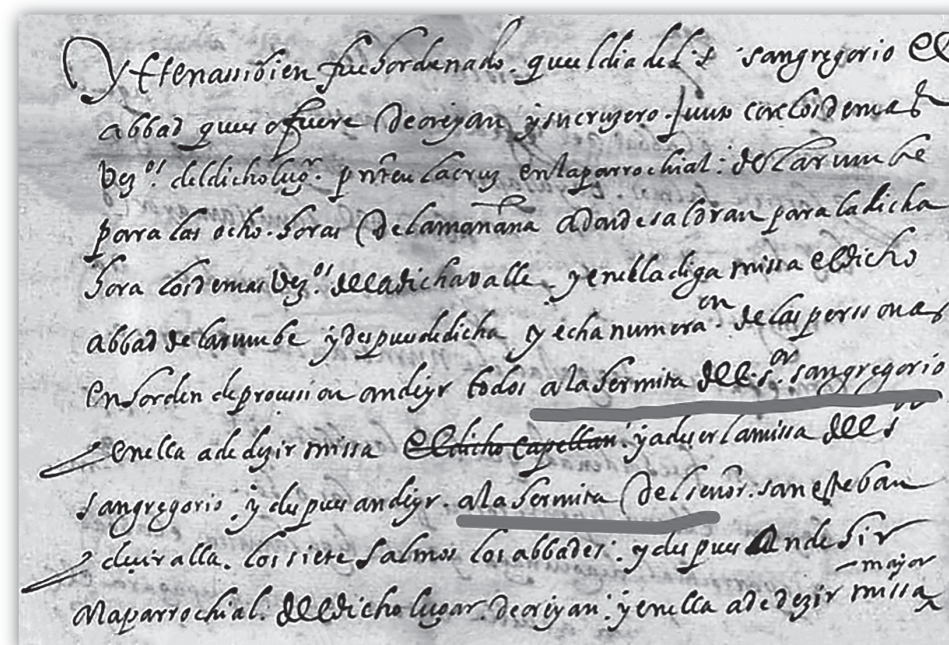 Yttenassibien fue hordenado. que el dia del s.r sangregorio el
abbad ques o fuere de oreyan y su cruzero. juno con los demas
vez.os del dicho lug.r. pnten la cruz en la parrochial: de larumbe
porra las ocho. horas de la manana a donde saldran para la dicha
hora los demas vez.os de la dicha valle. y en ella diga missa el dicho
abbad de larumbe y despues de dicha y echa numera.on de las perssonas
en horden de procession an de yr todos a la hermita del s.or sangregorio
en ella a de dezir missa el dicho capellan. y a de ser la missa del s.r
sangregorio. y despues an de yr. a la hermita del senor. san esteban
dezir alla. los siete salmos los abbades. y despues an de hir
a la parrochial. del dicho lugar de oreyan. y en ella a de dezir missa mayor